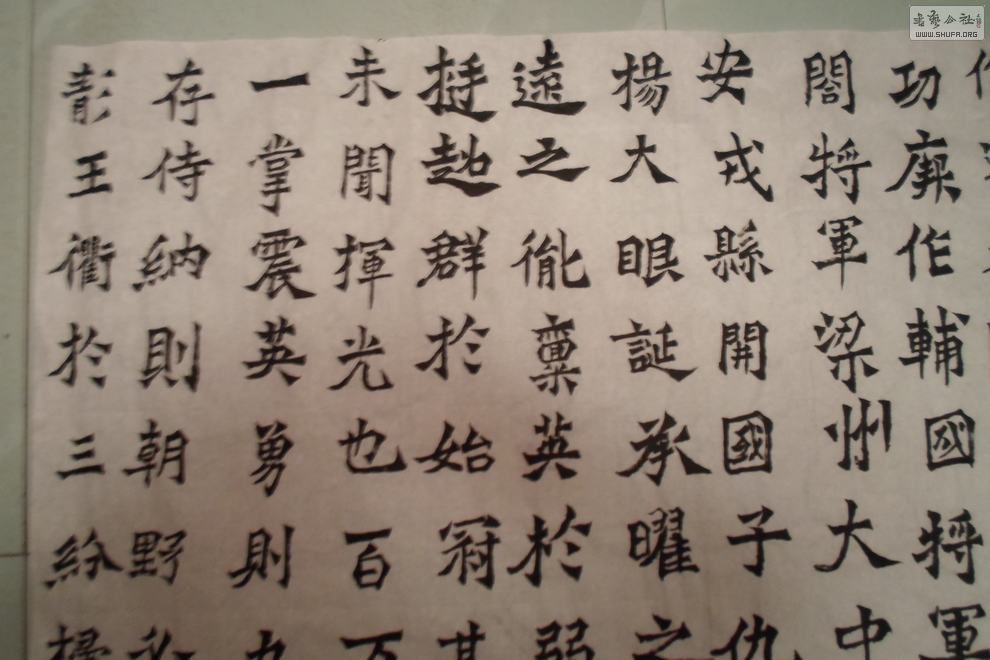 功作輔國將軍
閤將軍梁州大中
安戎縣開國子仇
揚大眼誕承曜之
遠之胤稟英於弱
挺超群於始冠其
未聞揮光也百万
一掌震英勇則九
存侍納則朝野必
王衢於三紛掃
書藝公社
WWW.SHUFA.ORG